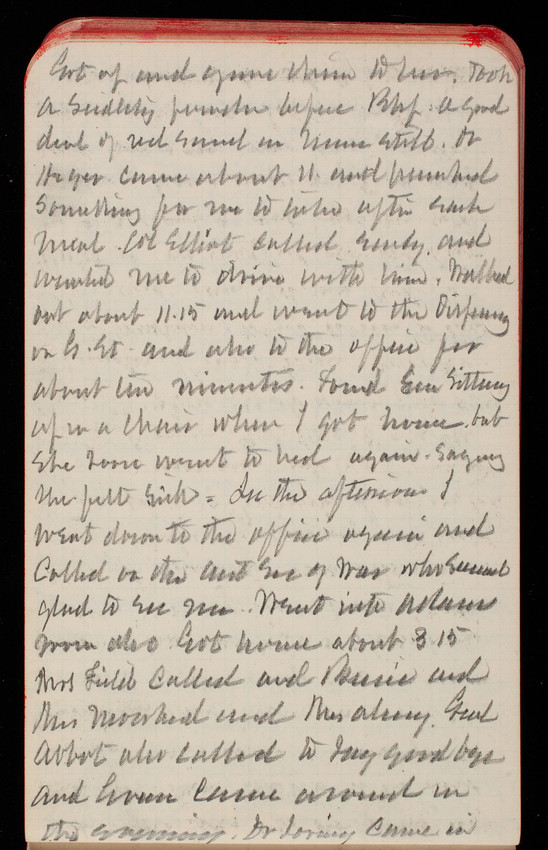 Got up and again down to tea. Took
a Seidlitz powder before Bkf. A good
deal of red sand in urine still. Dr
Heger came about 11 and
something for me to take after each
meal. Col Elliot called early, and
wanted me to drive with him. Walked
out about 11.15 and went to the Dispensary
on G. St. and also to the office for
about ten minutes. Found Em sitting
up in a chair when I got home, but
she soon went to bed again. Saying
she felt sick = In the afternoon I
went down to the office again and
called on the Asst Sec of War who seemed
glad to see me. Went into Adams
room also Got home about 3 15
Mrs Field called and and
Mrs and Mrs Genl
Abbot also called to say good bye
and came around in
the evening. Dr Loring came in